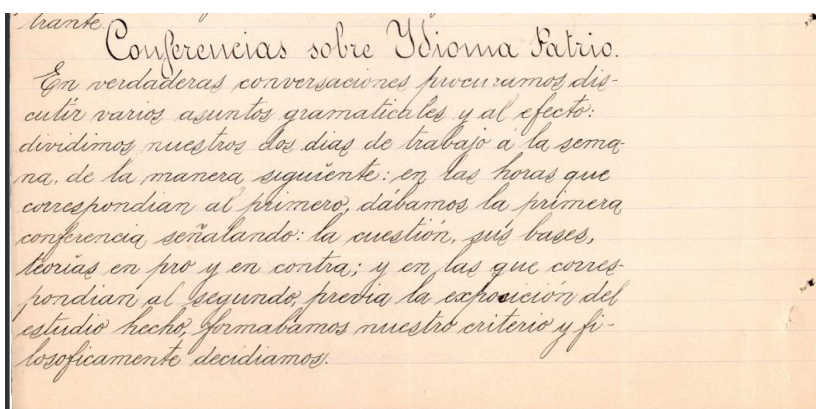 trante.
Conferencias sobre Ydioma Patrio.
En verdaderas conversaciones procuramos dis-
cutir varios asuntos gramaticales y al efecto:
dividimos nuestros dos dias de trabajo á la sema-
na, de la manera siguiente: en las horas que
correspondian al primero, dábamos la primera
conferencia señalando: la cuestión, sus bases,
teorías en pro y en contra; y en las que corres-
pondian al segundo, previa la exposición del
estudio hecho, formabamos nuestro criterio y fi-
losoficamente decidiamos.